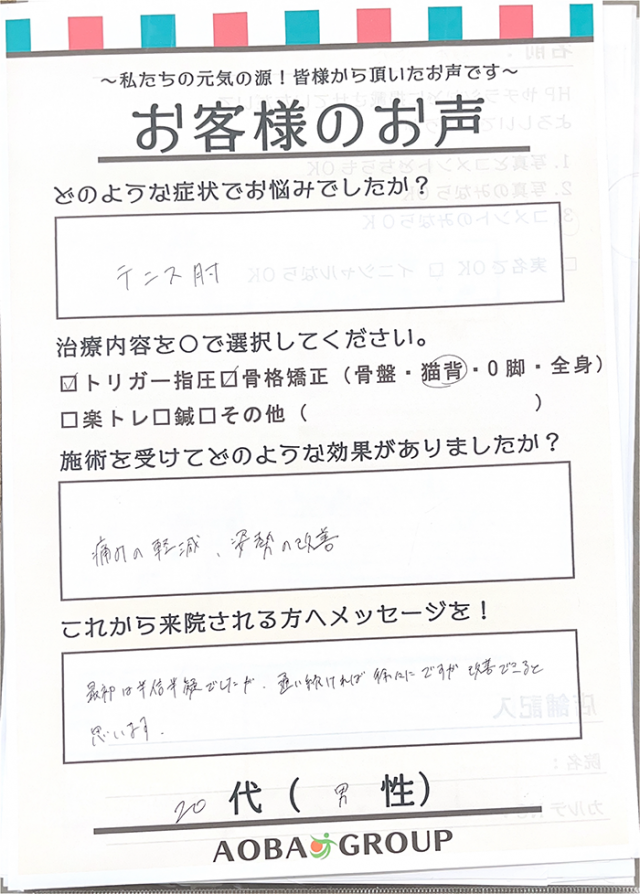 ～私たちの元気の源！皆様から頂いたお声です～
お客様のお声
どのような症状でお悩みでしたか？
テニス肘
治療内容を○で選択してください。
☑トリガー指圧☑骨格矯正（骨盤・猫背・O脚・全身）
□楽トレ□鍼□その他（　　　　　　　　　）
施術を受けてどのような効果がありましたか？
痛みの軽減、姿勢の改善
これから来院される方へメッセージを！
最初は半信半疑でしたが、通い続ければ徐々にですが改善できると
思います。
20代（男性）
AOBA GROUP